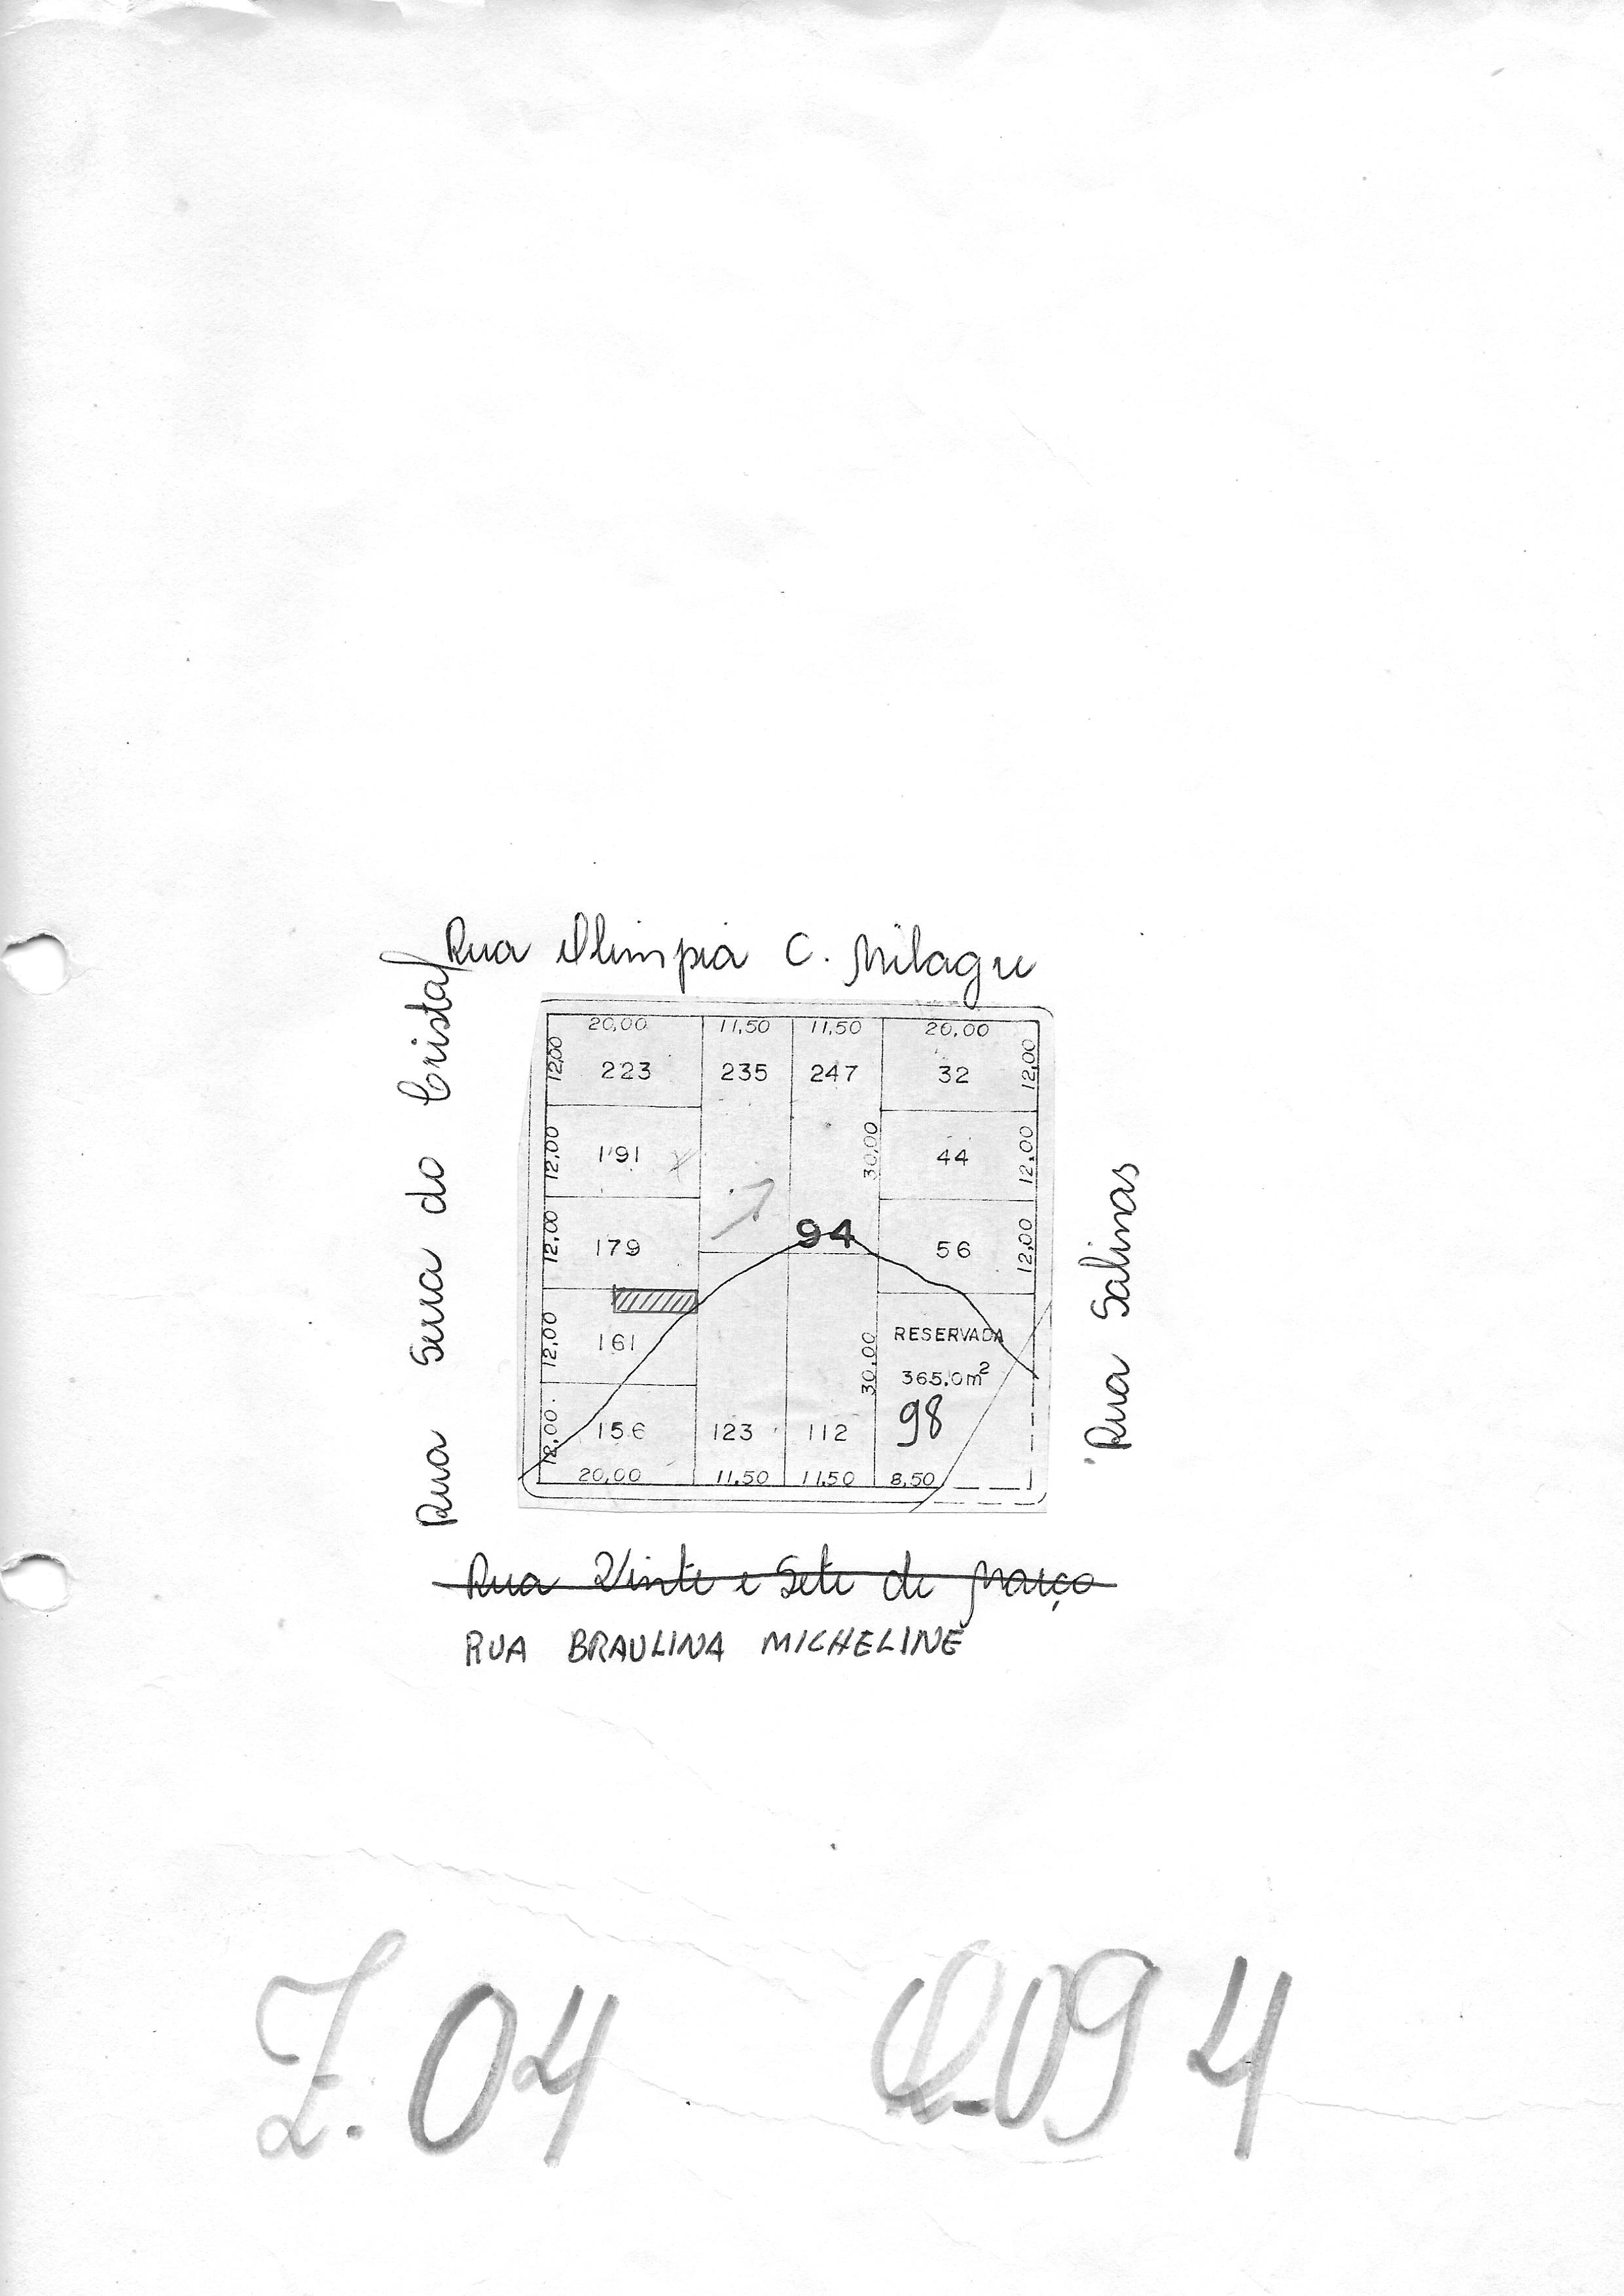 Rua Olimpia C. Milagre
Rua Serra do Cristal
20,00 11,50 11,50 20,00
12,00 223 235 247 32 12,00
12,00 191 30,00 44 12,00
12,00 179 94 56 12,00
12,00 161 30,00 RESERVADA
365.0m²
98
12,00 156 123 112
20,00 11,50 11,50 8,50
Rua Salinas
Rua Vinte e Sete de Março
RUA BRAULINA MICHELINE
Z. 04 Q-094